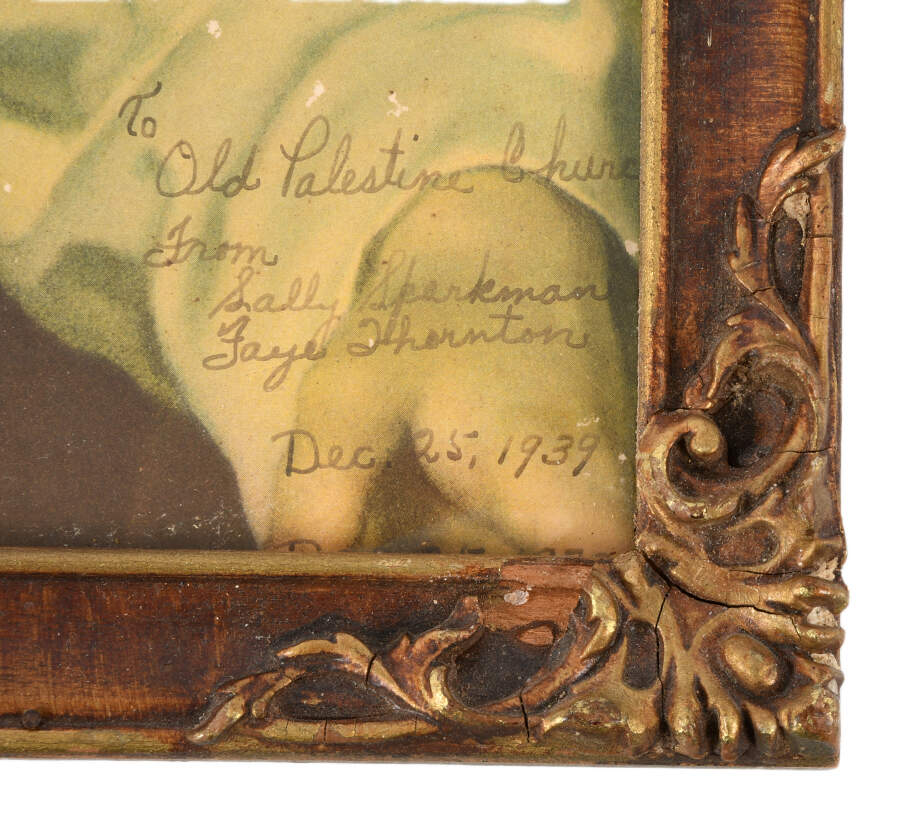 To
Old Palestine Churc
From
Sally Sparkman
Faye Thornton
Dec. 25, 1939